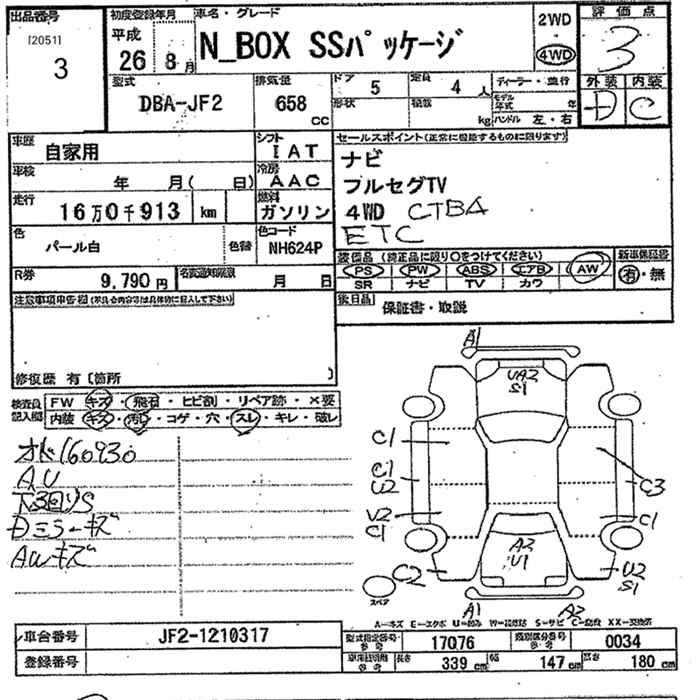 出品番号
[2051]
3
初度登録年月
平成
26 8月
車名・グレード
N_BOX SSパッケージ
2WD
4WD
評価点
3
外装 内装
D C
型式
DBA-JF2
排気量
658
CC
ドア 5
定員 4 人
形状
積載 kg
ディーラー・並行
モデル年式 年
ハンドル 左・右
車歴
自家用
シフト
IAT
車検
年 月( 日)
冷房
AAC
走行
16万0千913 km
燃料
ガソリン
色
パール白
色替
色コード
NH624P
R券
9,790円
名義変更期限
月 日
セールスポイント(正常に機能するものに限ります)
ナビ
フルセグTV
4WD CTBA
ETC
装備品 (純正品に限り○をつけてください)
PS PW ABS エアB AW
SR ナビ TV カワ
新車保証書
有・無
後日品
保証書・取説
注意事項申告欄(不具合内容等は具体的に記入して下さい)
修復歴 有 [箇所 ]
検査員
記入欄
FW キズ・飛石・ヒビ割・リペア跡・×要
内装 キズ・汚れ・コゲ・穴・スレ・キレ・破レ
オド160930
AU
下回りS
Dミラーキズ
AWキズ
A1
UA2
S1
C1
C1
U2
U2
C1
C2
C3
C1
U2
S1
A2
U1
A1
A2
スペア
A=キズ E=エクボ U=凹み W=補修跡 S=サビ C=腐蝕 XX=交換済
車台番号
JF2-1210317
登録番号
型式指定番号・参考
17076
類別区分番号・参考
0034
車両諸元参考
長さ 339cm
幅 147cm
高さ 180cm